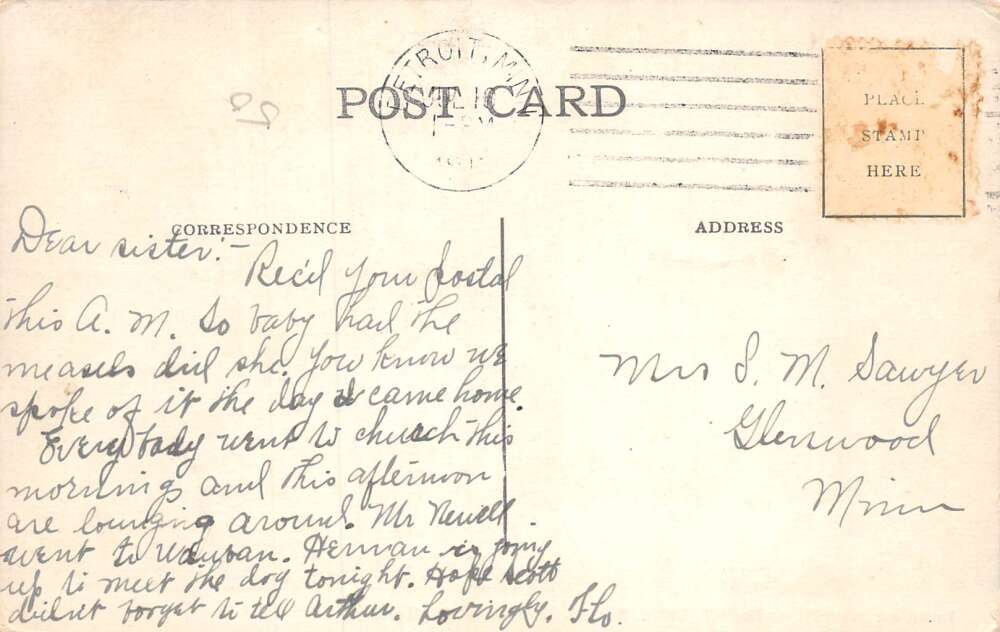 POST CARD
DETROIT, MINN.
PLACE
STAMP
HERE
CORRESPONDENCE
ADDRESS
Dear sister:-
Rec'd your postal
this A. M. So baby had the
measels did she. You know we
spoke of it the day I came home.
Everybody went to church this
morning and this afternoon
are lounging around. Mr Newell
went to Waubun. Herman is going
up to meet the dog tonight. Hope Scott
didn't forget to tell Arthur. Lovingly, Flo.
Mrs S. M. Sawyer
Glenwood
Minn